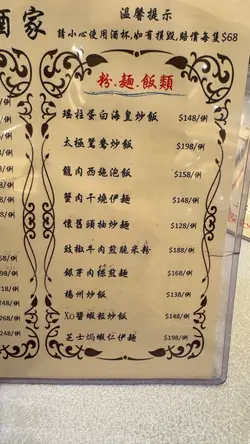 酒家
溫馨提示
請小心使用酒杯,如有損毀,賠償每隻$68
粉.麵.飯類
瑤柱蛋白海皇炒飯 $148/例
太極鴛鴦炒飯 $198/例
龍肉西施泡飯 $158/例
蟹肉干燒伊麵 $148/例
懷舊頭抽炒麵 $128/例
豉椒牛肉煎脆米粉 $188/例
銀芽肉絲煎麵 $168/例
揚州炒飯 $138/例
Xo醬蝦粒炒飯 $148/例
芝士焗蝦仁伊麵 $198/例